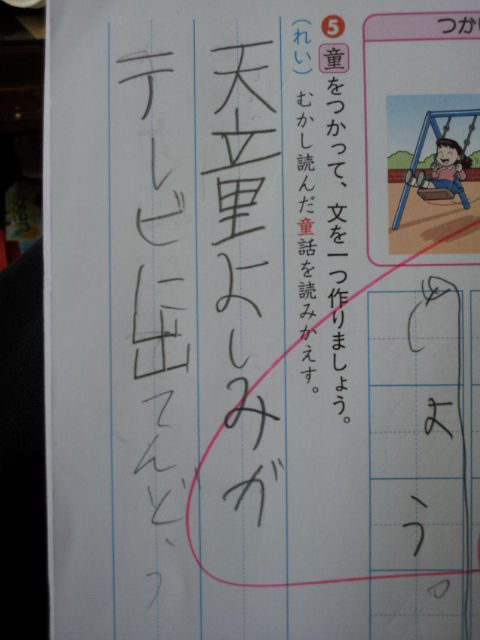 つかい
しょう。
❺童をつかって、文を一つ作りましょう。
(れい) むかし読んだ童話を読みかえす。
天童よしみが
テレビに出てんどう